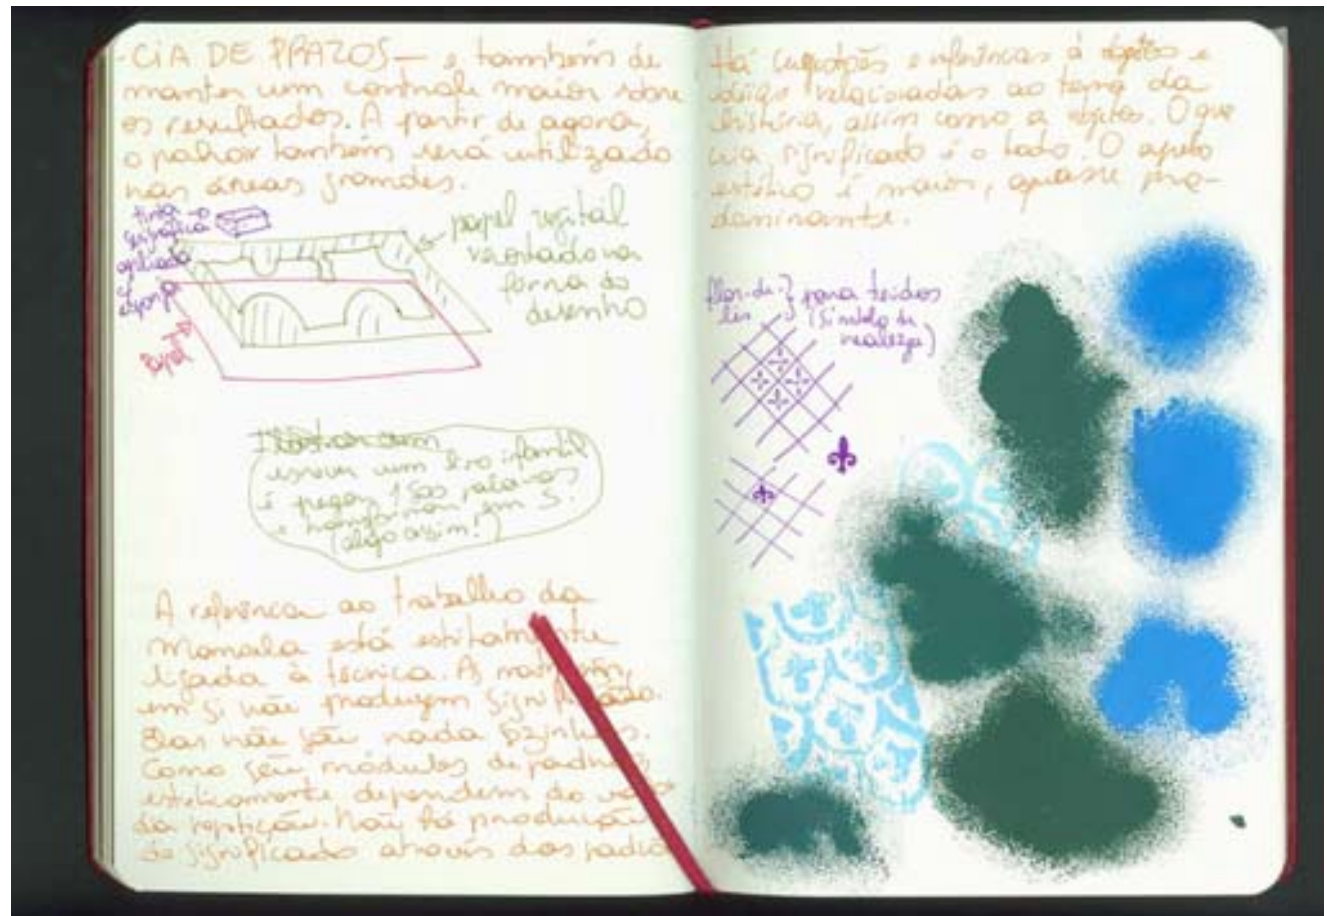 -CIA DE PRAZOS — e também de
manter um controle maior sobre
os resultados. A partir de agora,
o pahoir também será utilizado
nas áreas grandes.
tinta
serigráfica
aplicada
c/
esponja
papel vegetal
recortado na
forma do
desenho
papel
escrever um livro infantil
é pegar 1500 palavras
e transformar em 5.
(algo assim!)
A referência ao trabalho da
Manoela está estritamente
ligada à técnica. As
em si não produzem significado.
Elas não são nada sozinhas.
Como são módulos de padrões,
esteticamente dependem do
da repetição. Não há produção
de significado através dos padrõ
Há sugestões e referências à objetos e
relacionadas ao tema da
história, assim como a objetos. O que
cria significado é o todo. O apelo
estético é maior, quase pre-
dominante.
flor-de-
lis
} para tecidos
(símbolo de
realeza)